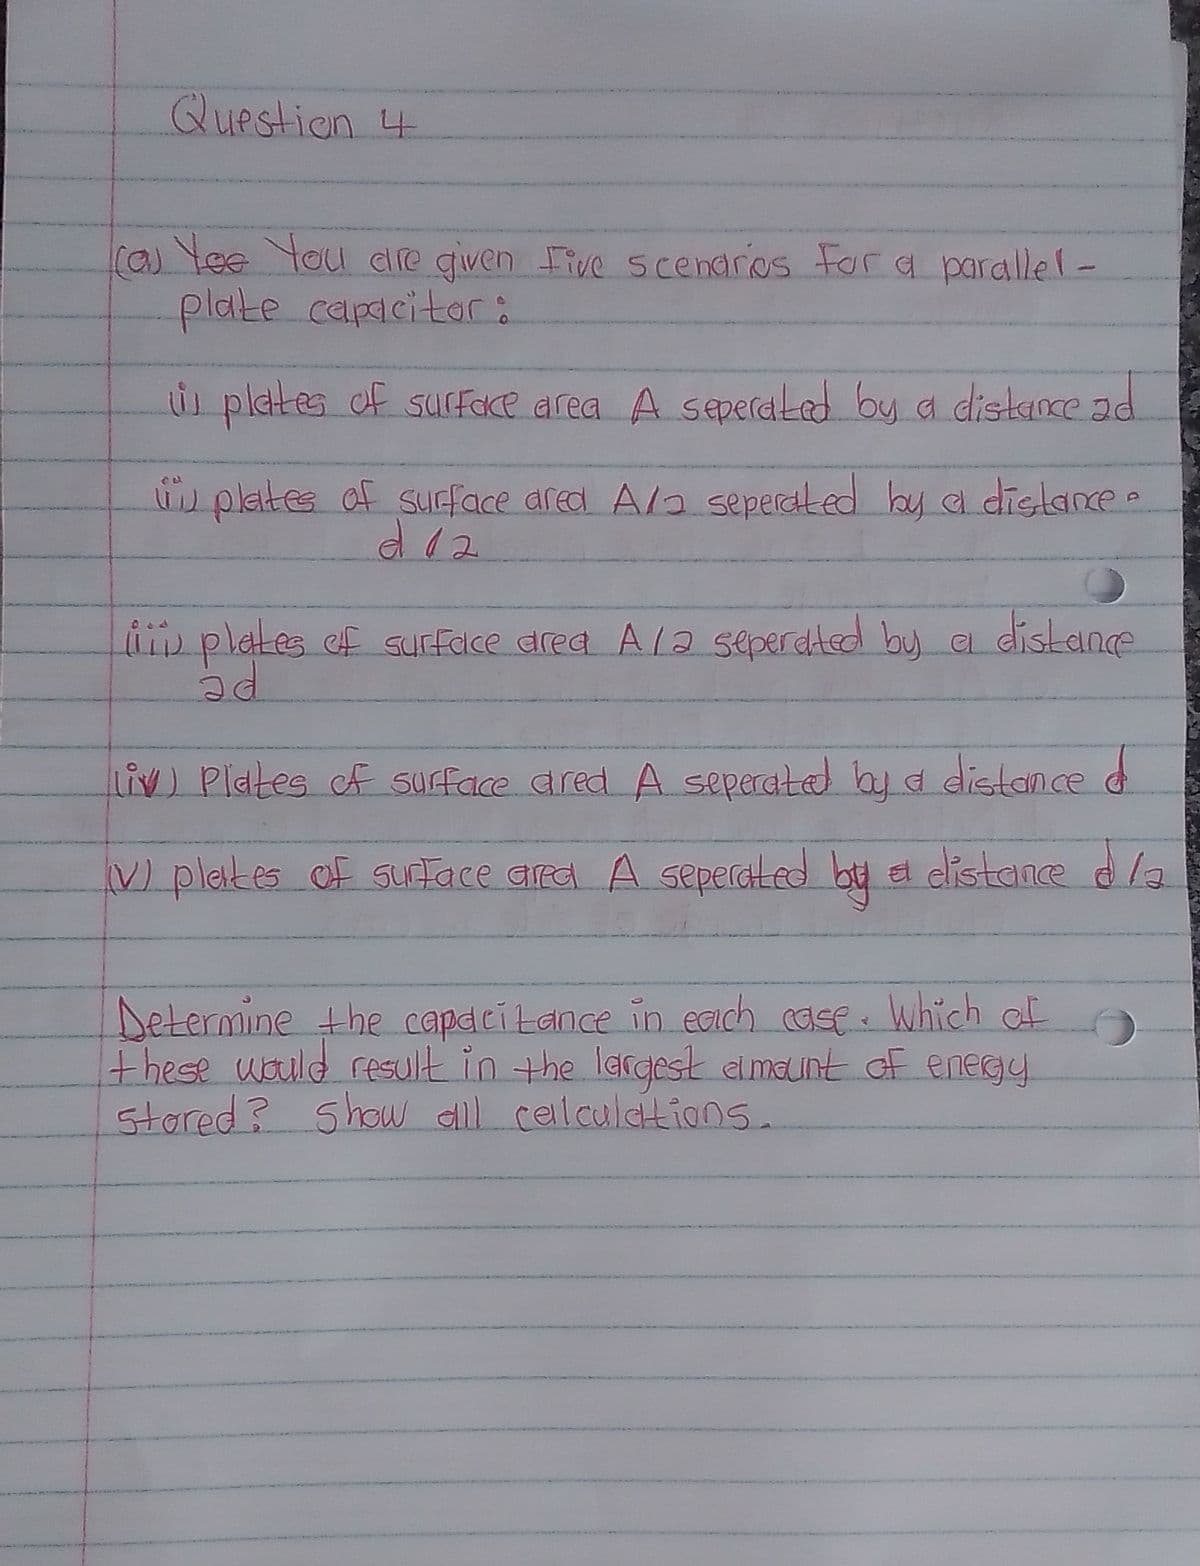 Question 4
(a) Yoo You are given five scenarios for a parallel-
plate capacitor:
(i) plates of surface area A seperated by a distance 2d
(ii) plates of surface area A/2 seperated by a distance
d/2
(iii) plates of surface area A/2 seperated by a distance
2d
(iv) Plates of surface area A seperated by a distance d
(v) plates of surface area A seperated by a distance d/2
Determine the capacitance in each case. Which of
these would result in the largest amount of energy
stored? Show all calculations.